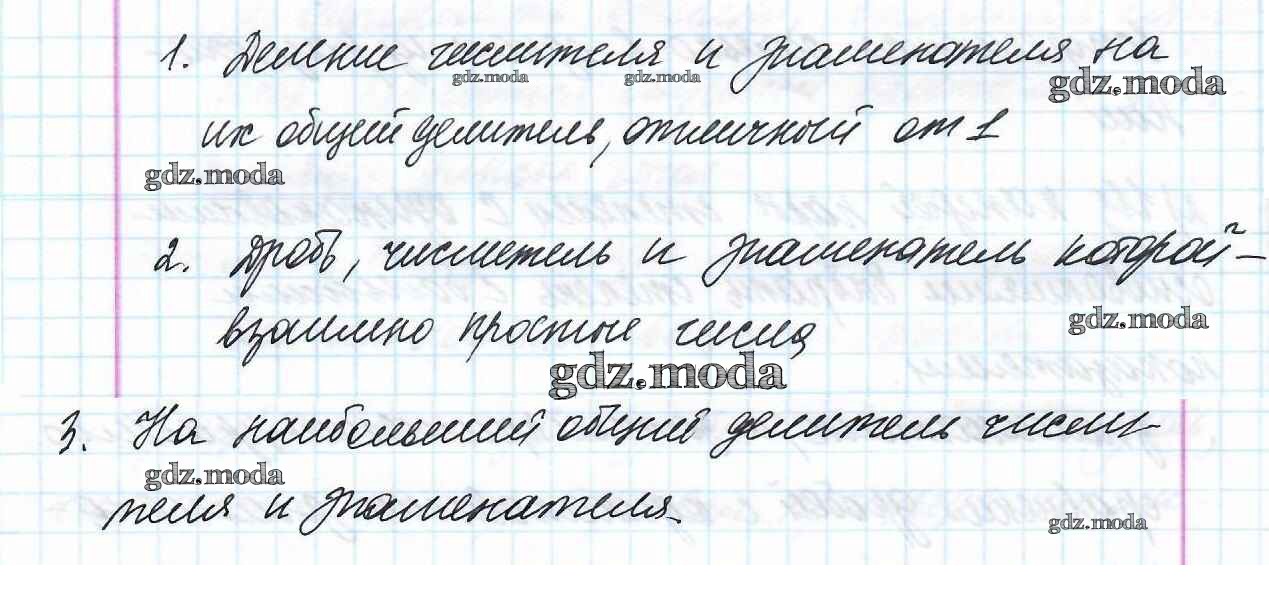 1. Деление числителя и знаменателя на
gdz.moda gdz.moda gdz.moda
их общий делитель, отличный от 1
gdz.moda
2. Дробь, числитель и знаменатель которой –
взаимно простые числа
gdz.moda
gdz.moda
3. На наибольший общий делитель числи-
gdz.moda
теля и знаменателя
gdz.moda